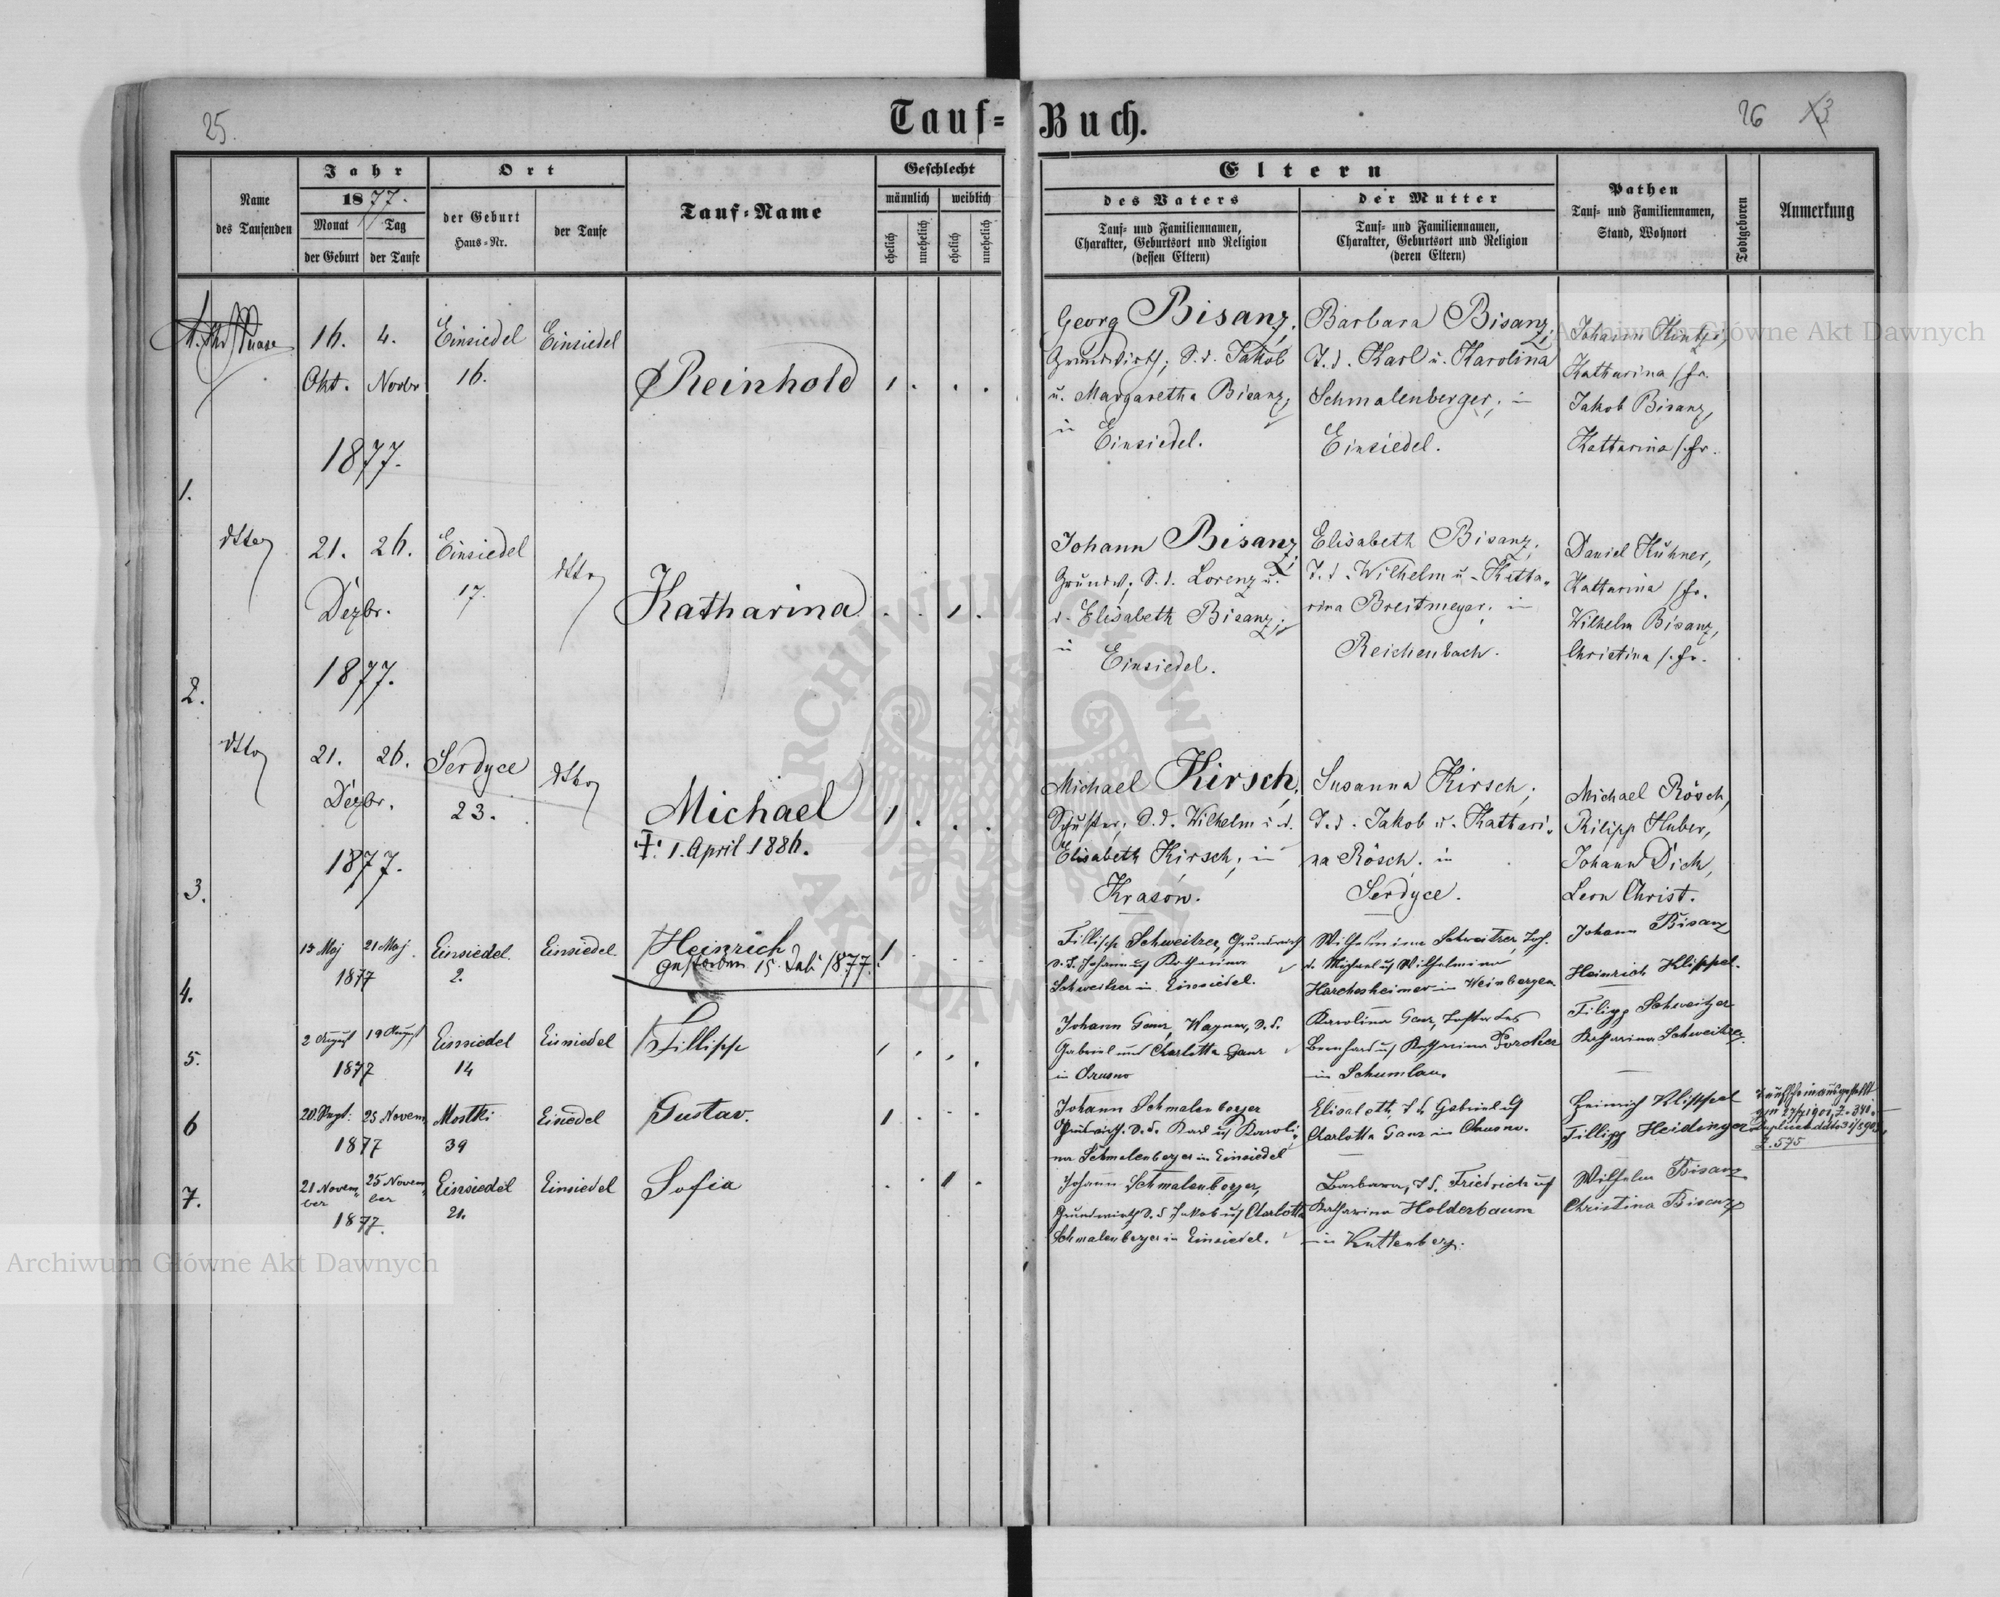 25.
Tauf-Buch.
26
Name des Taufenden
Jahr
1877.
Monat der Geburt
Tag der Taufe
Ort
der Geburt Haus-Nr.
der Taufe
Tauf-Name
Geschlecht
männlich
weiblich
ehelich
unehelich
ehelich
unehelich
Eltern
des Vaters
Tauf- und Familiennamen,
Charakter, Geburtsort und Religion
(dessen Eltern)
der Mutter
Tauf- und Familiennamen,
Charakter, Geburtsort und Religion
(deren Eltern)
Pathen
Tauf- und Familiennamen,
Stand, Wohnort
Todtgeboren
Anmerkung
1.
16. Okt.
4. Novbr
1877.
Einsiedel
16.
Einsiedel
Reinhold
1 . . .
Georg Bisanz,
Grundwirth; S. d. Jakob
u. Margaretha Bisanz,
in
Einsiedel.
Barbara Bisanz,
T. d. Karl u. Karolina
Schmalenberger, in
Einsiedel.
Johann
Katharina s. Fr.
Jakob Bisanz,
Katharina s. Fr.
2.
dtto
21. 26.
Dezbr.
1877.
Einsiedel
17.
dtto
Katharina
. . 1 .
Johann Bisanz,
Grundw; S. d. Lorenz u.
d. Elisabeth Bisanz,
in
Einsiedel.
Elisabeth Bisanz,
T. d. Wilhelm u. Katha-
rina Breitmeyer, in
Reichenbach.
Daniel Kühner,
Katharina s. Fr.
Wilhelm Bisanz,
Christina s. Fr.
3.
dtto
21. 26.
Dezbr.
1877.
Serdyce
23.
dtto
Michael
†: 1. April 1886.
1 . . .
Michael Kirsch,
Schuster, S. d. Wilhelm u. d.
Elisabeth Kirsch, in
Krasów.
Susanna Kirsch,
T. d. Jakob u. Kathari-
na Rösch, in
Serdyce.
Michael Rösch,
Philipp Huber,
Johann Dich,
Leon Christ.
4.
21 Maj
1877
Einsiedel
2.
Einsiedel
Heinrich
gestorben 15. Juli 1877.
1 . . .
Fillipp Schweitzer, Grundwirth
S. d. Johann u Katharina
Schweitzer in Einsiedel.
Wilhelmina Schweitzer, Toch.
d. Michael u Wilhelmina
Harchesheimer in Weinbergen
Johann Bisanz
Heinrich Klippel.
5.
2 August 19 August
1877
Einsiedel
14
Einsiedel
Fillipp
Johann Ganz, Wagner, S. d.
Gabriel und Charlotta Ganz
in Chrusno
Karolina Ganz, Tochter des
Bernhard u Katharina Porcher
in Schumlau.
Filipp Schweitzer
Katharina Schweitzer.
6
25 Novem
1877
Mostki
39
Einsiedel
Gustav.
1 . . .
Johann Schmalenberger
Grundwirth. S. d. Karl u Karoli-
na Schmalenberger in Einsiedel
Elisabeth, T. d. Gabriel u
Charlotta Ganz in Chrusno.
Heinrich Klippel
Fillipp Heidinger
Taufschein ausgestellt
Z. 575
7.
21 Novem-
ber
25 Novem-
ber
1877.
Einsiedel
21.
Einsiedel
Sofia
. . 1 .
Johann Schmalenberger,
Grundwirth S. d Jakob u Charlotta
Schmalenberger in Einsiedel.
Barbara, T. d. Friedrich u
Katharina Holderbaum
in Kuttenberg.
Wilhelm Bisanz
Christina Bisanz
Archiwum Główne Akt Dawnych
Archiwum Główne Akt Dawnych
ARCHIWUM GŁÓWNE AKT DAWNYCH